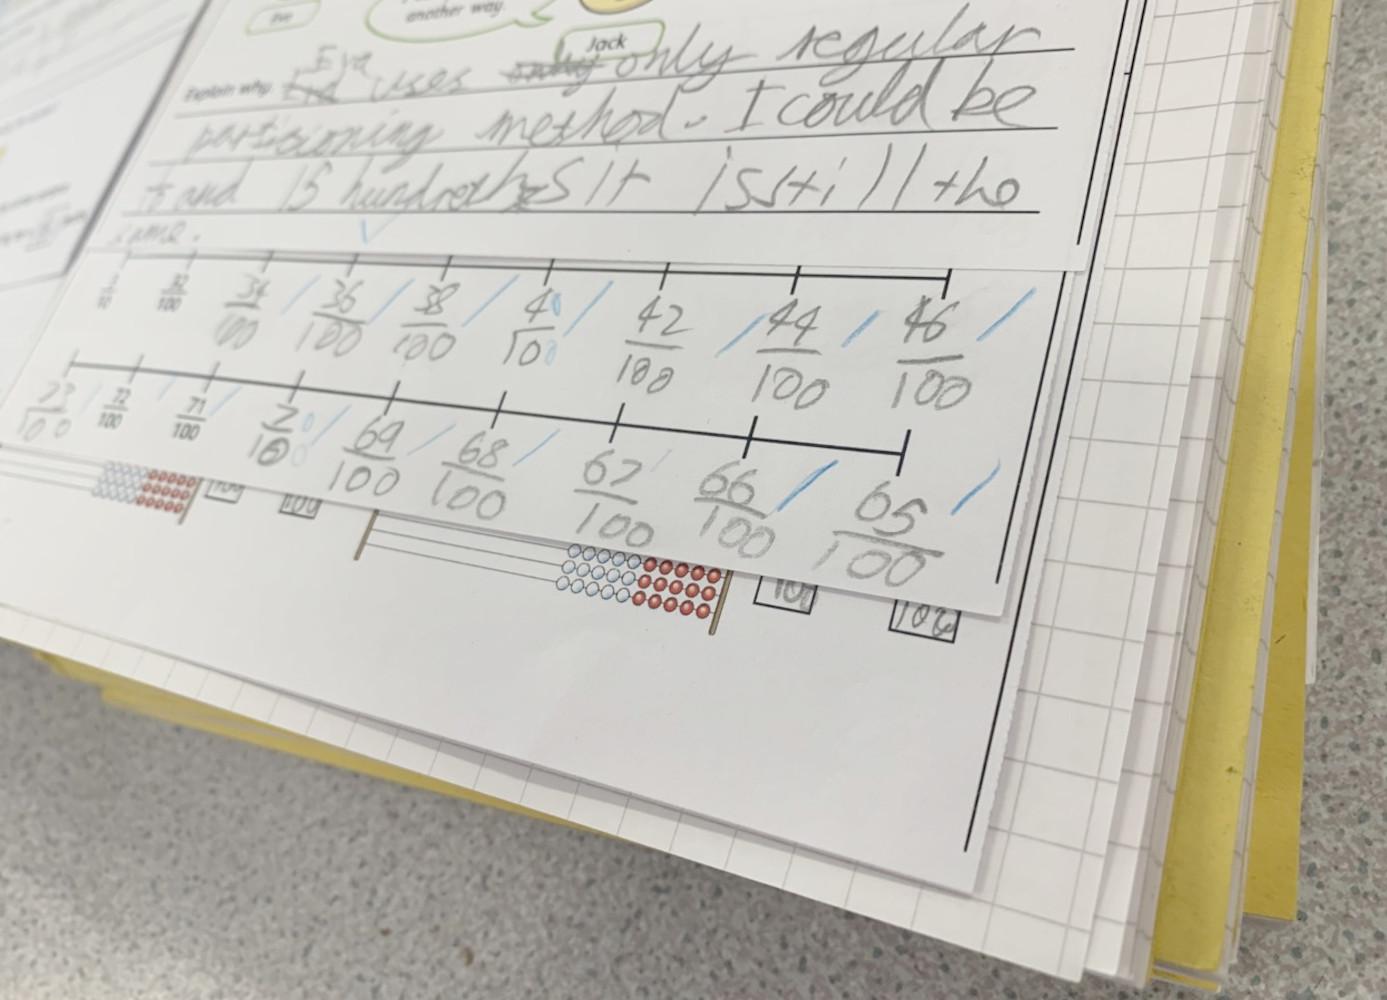 another way.
Jack
Explain why. Eva uses only regular
partisioning method. I could be
and 15 hundreths It is still the
same.
32/100 34/100 36/100 38/100 40/100 42/100 44/100 46/100
73/100 72/100 71/100 70/100 69/100 68/100 67/100 66/100 65/100
100 100